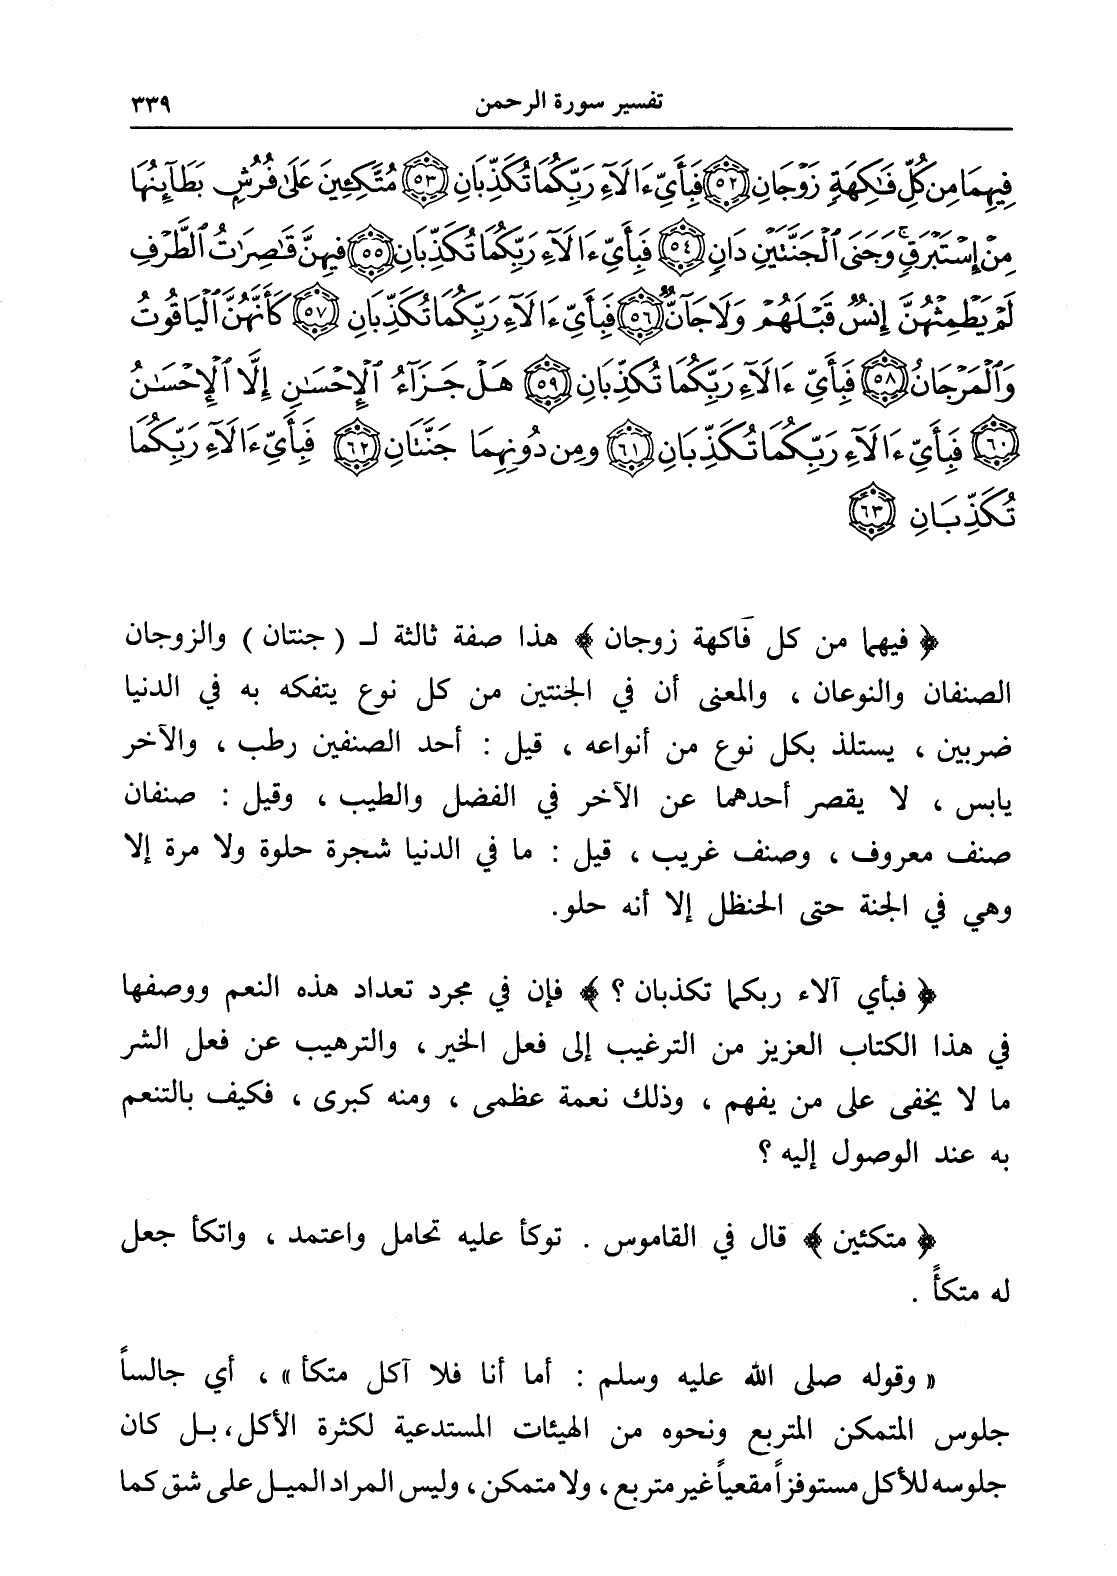 تفسير سورة الرحمن ٣٣٩
فِيهِمَا مِن كُلِّ فَٰكِهَةٍ زَوْجَانِ ٥٢ فَبِأَيِّ ءَالَآءِ رَبِّكُمَا تُكَذِّبَانِ ٥٣ مُتَّكِـِٔينَ عَلَىٰ فُرُشٍۭ بَطَآئِنُهَا
مِنْ إِسْتَبْرَقٍۚ وَجَنَى ٱلْجَنَّتَيْنِ دَانٍ ٥٤ فَبِأَيِّ ءَالَآءِ رَبِّكُمَا تُكَذِّبَانِ ٥٥ فِيهِنَّ قَٰصِرَٰتُ ٱلطَّرْفِ
لَمْ يَطْمِثْهُنَّ إِنسٌ قَبْلَهُمْ وَلَا جَآنٌّ ٥٦ فَبِأَيِّ ءَالَآءِ رَبِّكُمَا تُكَذِّبَانِ ٥٧ كَأَنَّهُنَّ ٱلْيَاقُوتُ
وَٱلْمَرْجَانُ ٥٨ فَبِأَيِّ ءَالَآءِ رَبِّكُمَا تُكَذِّبَانِ ٥٩ هَلْ جَزَآءُ ٱلْإِحْسَٰنِ إِلَّا ٱلْإِحْسَٰنُ
٦٠ فَبِأَيِّ ءَالَآءِ رَبِّكُمَا تُكَذِّبَانِ ٦١ وَمِن دُونِهِمَا جَنَّتَانِ ٦٢ فَبِأَيِّ ءَالَآءِ رَبِّكُمَا
تُكَذِّبَانِ ٦٣
﴿ فيهما من كل فاكهة زوجان ﴾ هذا صفة ثالثة لـ ( جنتان ) والزوجان
الصنفان والنوعان ، والمعنى أن في الجنتين من كل نوع يتفكه به في الدنيا
ضربين ، يستلذ بكل نوع من أنواعه ، قيل : أحد الصنفين رطب ، والآخر
يابس ، لا يقصر أحدهما عن الآخر في الفضل والطيب ، وقيل : صنفان
صنف معروف ، وصنف غريب ، قيل : ما في الدنيا شجرة حلوة ولا مرة إلا
وهي في الجنة حتى الحنظل إلا أنه حلو.
﴿ فبأي آلاء ربكما تكذبان ؟ ﴾ فإن في مجرد تعداد هذه النعم ووصفها
في هذا الكتاب العزيز من الترغيب إلى فعل الخير ، والترهيب عن فعل الشر
ما لا يخفى على من يفهم ، وذلك نعمة عظمى ، ومنه كبرى ، فكيف بالتنعم
به عند الوصول إليه ؟
﴿ متكئين ﴾ قال في القاموس . توكأ عليه تحامل واعتمد ، واتكأ جعل
له متكأً .
« وقوله صلى الله عليه وسلم : أما أنا فلا آكل متكأ » ، أي جالساً
جلوس المتمكن المتربع ونحوه من الهيئات المستدعية لكثرة الأكل، بل كان
جلوسه للأكل مستوفزاً مقعياً غير متربع ، ولا متمكن ، وليس المراد الميل على شق كما